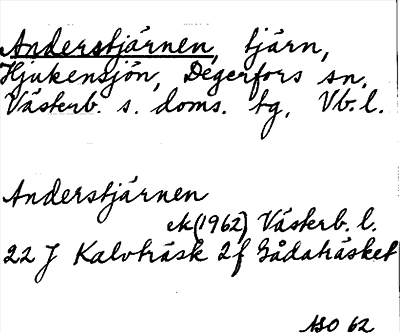 Anderstjärnen, tjärn,
Hjukensjön, Degerfors sn,
Västerb. s. doms. tg, Vb. l.
Anderstjärnen
ek (1962) Västerb. l.
22 J Kalvträsk 2f Gådaträsket
ASO 62